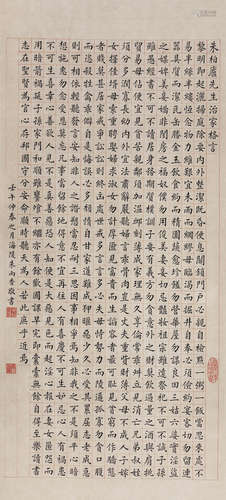 朱柏廬先生治家格言
黎明即起灑掃庭除要內外整潔既昏便息關鎖門戶必親自檢點一粥一飯當思來處不
易半絲半縷恒念物力維艱宜未雨而綢繆毋臨渴而掘井自奉必須儉約宴客切勿留連
器具質而潔瓦缶勝金玉飲食約而精園蔬愈珍饈勿營華屋勿謀良田三姑六婆實淫盜
之媒婢美妾嬌非閨房之福奴僕勿用俊美妻妾切忌豔妝祖宗雖遠祭祀不可不誠子孫
雖愚經書不可不讀居身務期質樸訓子要有義方勿貪意外之財莫飲過量之酒與肩挑
貿易毋佔便宜見貧苦親鄰須加溫卹刻薄成家理無久享倫常乖舛立見消亡兄弟叔姪
須分多潤寡長幼內外宜法肅辭嚴聽婦言乖骨肉豈是丈夫重貲財薄父母不成人子嫁
女擇佳壻毋索重聘娶媳求淑女勿計厚奩見富貴而生諂容者最可恥遇貧窮而作驕態
者賤莫甚居家戒爭訟訟則終凶處世戒多言言多必失毋恃勢力而凌逼孤寡勿貪口腹
而恣殺牲禽乖僻自是悔誤必多頹惰自甘家道難成狎暱惡少久必受其累屈志老成急
則可相依輕聽發言安知非人之譖愬當忍耐三思因事相爭安知非我之不是須平心暗
想施惠勿念受恩莫忘凡事當留餘地得意不宜再往人有喜慶不可生妒忌心人有禍患
不可生喜幸心善欲人見不是真善惡恐人知便是大惡見色而起淫心報在妻女匿怨而
用暗箭禍延子孫家門和順雖饔飧不繼亦有餘歡國課早完即囊橐無餘自得至樂讀書
志在聖賢為官心存君國守分安命順時聽天為人若此庶乎近焉
壬午仲春之月海陵朱雨香敬書